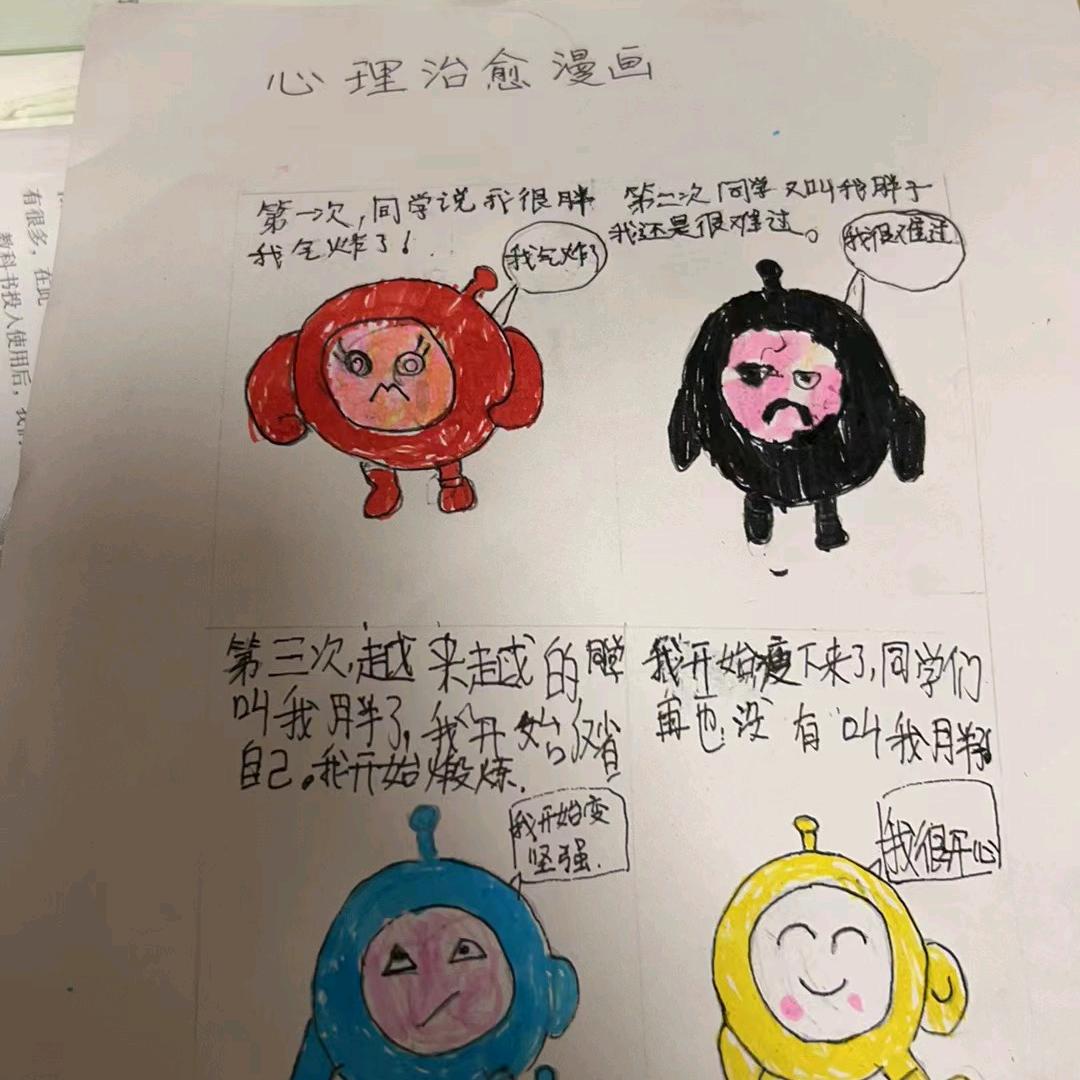 心理治愈漫画
第一次,同学说我很胖
我气炸了!
我气炸了
第二次同学又叫我胖子
我还是很难过。
我很难过
第三次,越来越的胖
叫我胖了,我开始反省
自己。我开始煅炼.
我开始变
坚强.
我开始瘦下来了,同学们
再也没有叫我胖
我很开心
有很多,在此
教科书投入使用后,我们